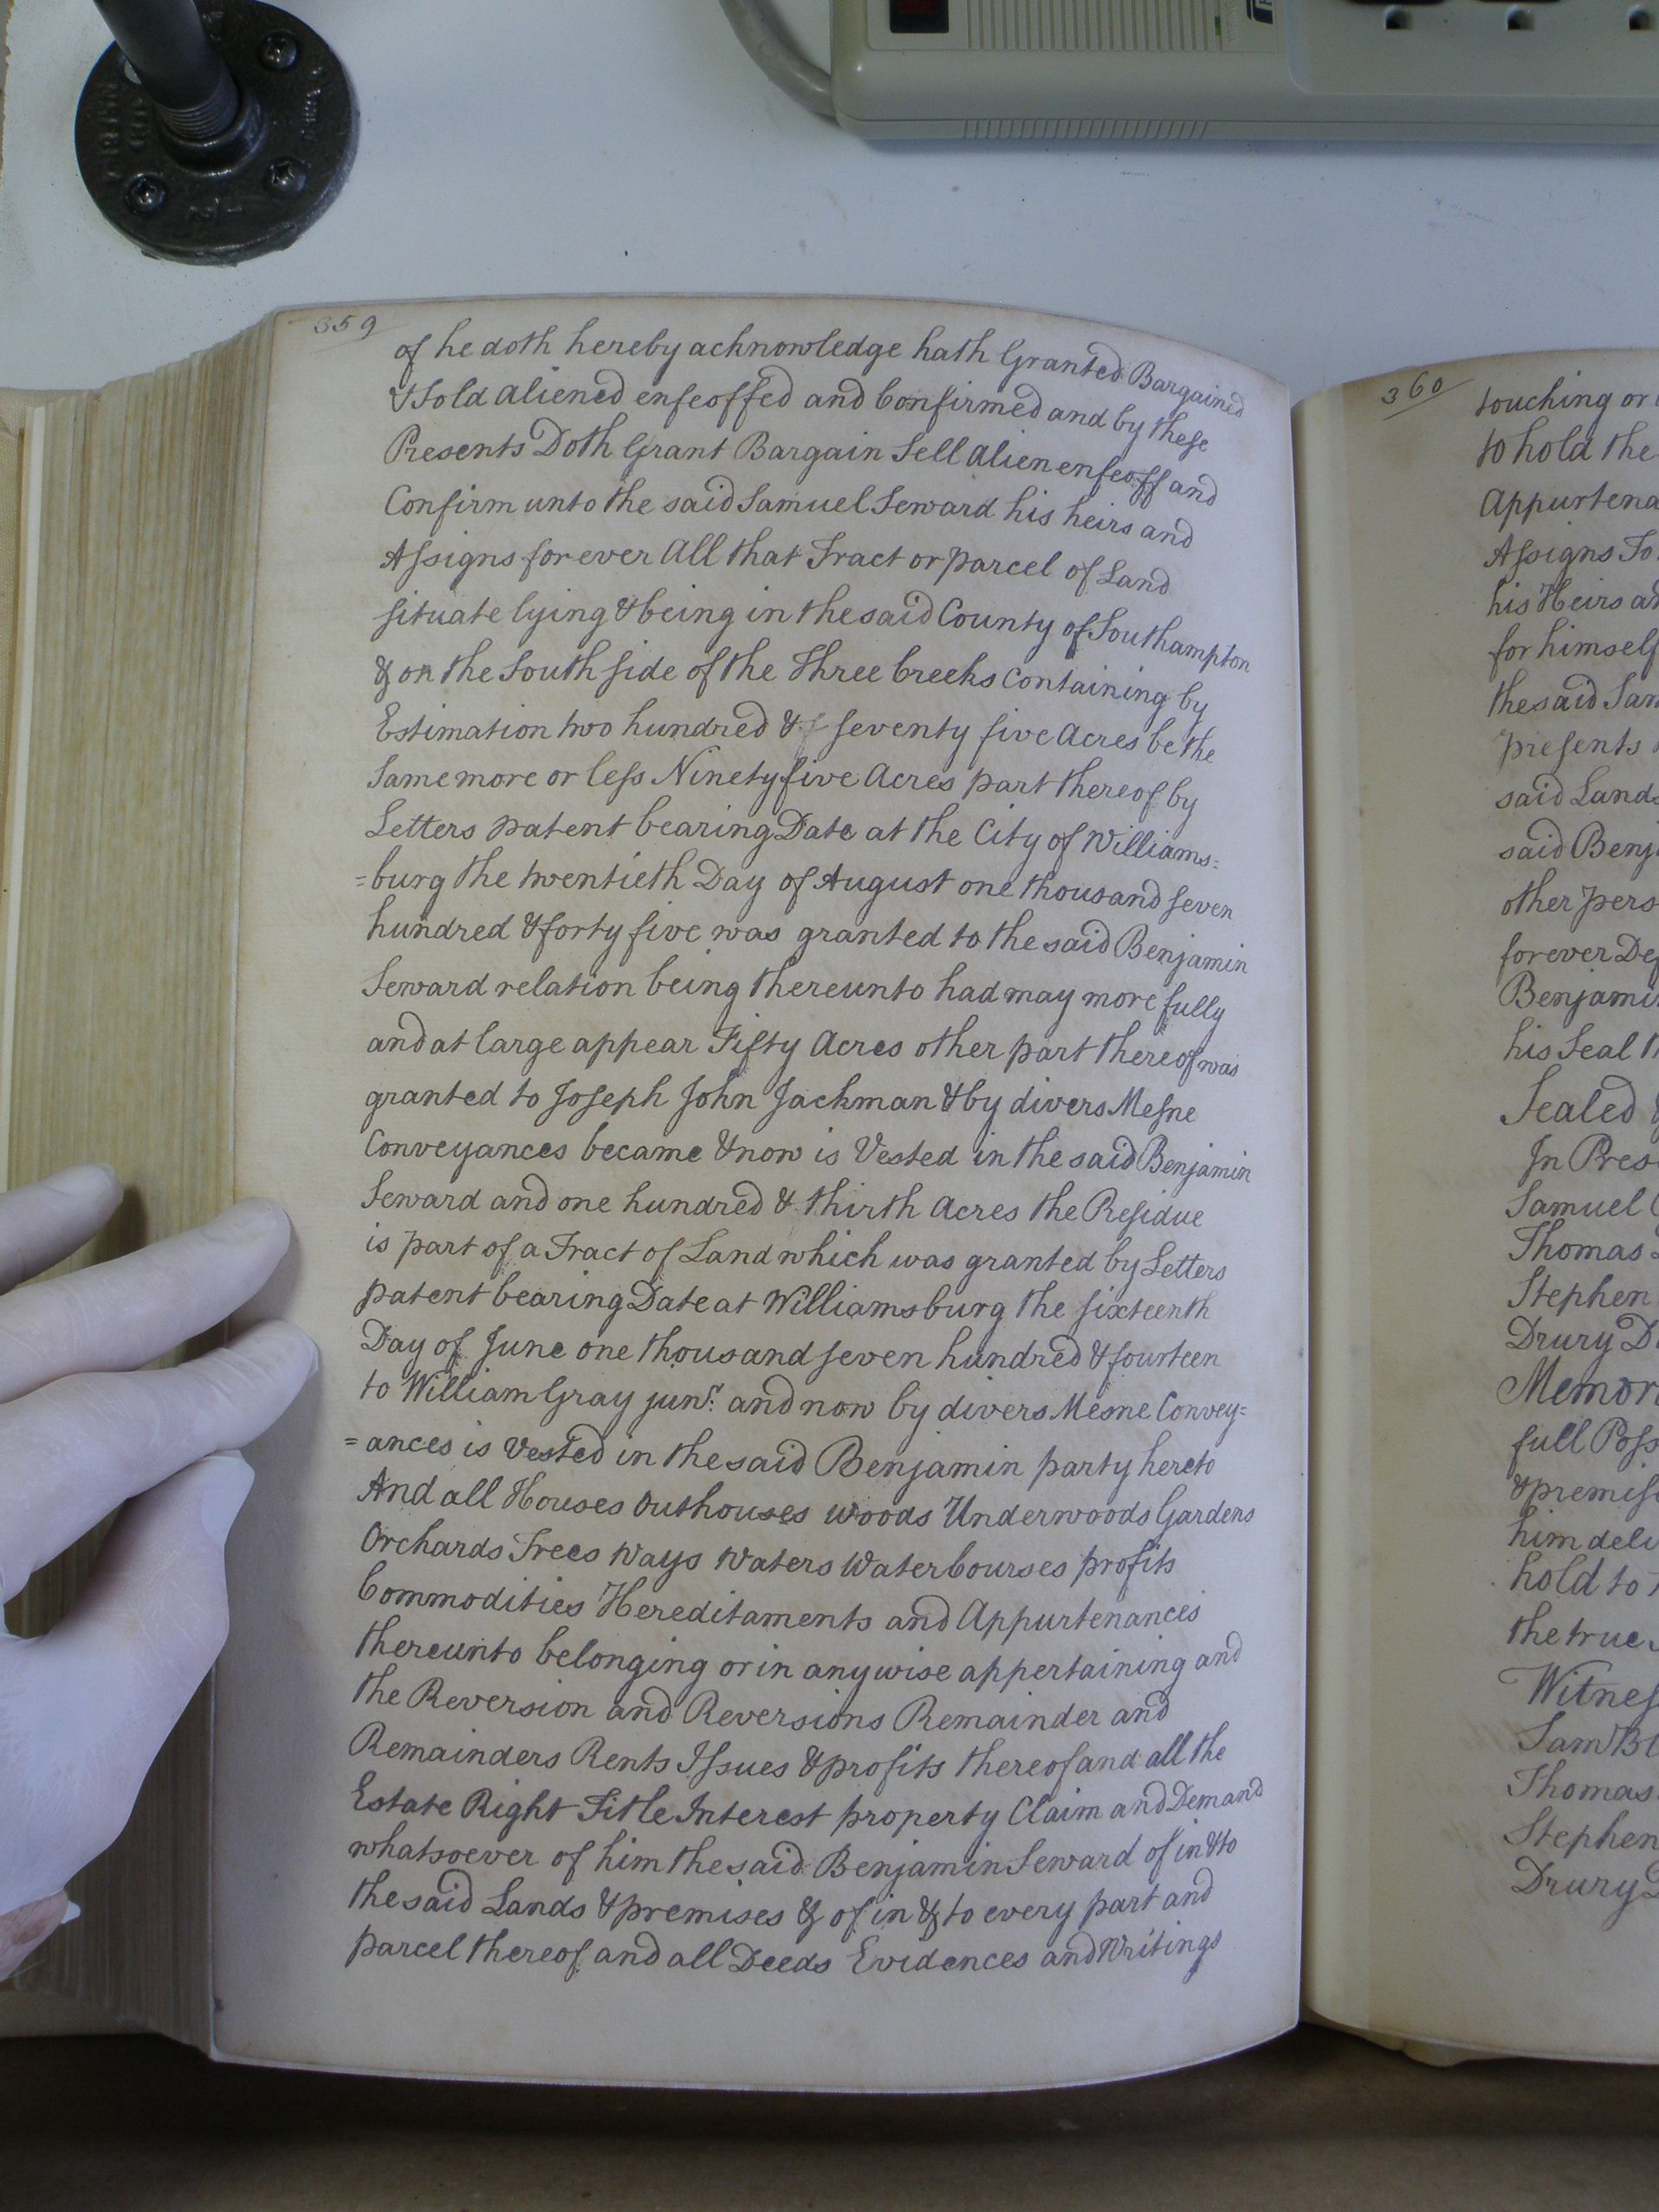 359
of he doth hereby acknowledge hath Granted Bargained
& Sold aliened enfeoffed and Confirmed and by these
Presents Doth Grant Bargain Sell alien enfeoff and
Confirm unto the said Samuel Seward his heirs and
Assigns for ever All that Tract or parcel of Land
situate lying & being in the said County of Southampton
& on the South side of the Three Creeks Containing by
Estimation two hundred & seventy five Acres be the
Same more or less Ninety five Acres part thereof by
Letters patent bearing Date at the City of Williams=
=burg the twentieth Day of August one thousand seven
hundred & forty five was granted to the said Benjamin
Seward relation being thereunto had may more fully
and at large appear Fifty Acres other part thereof was
granted to Joseph John Jackman & by divers Mesne
Conveyances became & now is Vested in the said Benjamin
Seward and one hundred & thirth Acres the Residue
is part of a Tract of Land which was granted by Letters
patent bearing Date at Williamsburg the sixteenth
Day of June one thousand seven hundred & fourteen
to William Gray junr. and now by divers Mesne Convey=
=ances is Vested in the said Benjamin party hereto
And all Houses Outhouses Woods Underwoods Gardens
Orchards Trees Ways Waters Water Courses profits
Commodities Hereditaments and Appurtenances
thereunto belonging or in any wise appertaining and
the Reversion and Reversions Remainder and
Remainders Rents Issues & profits thereof and all the
Estate Right Title Interest property Claim and Demand
whatsoever of him the said Benjamin Seward of in & to
the said Lands & premises & of in & to every part and
parcel thereof and all Deeds Evidences and Writings
360
touching or
to hold the
Appurtena
Assigns To
his Heirs an
for himself
the said Sam
presents
said Lands
said Benj
other pers
for ever Def
Benjamin
his Seal th
Sealed &
In Pres
Samuel
Thomas
Stephen
Drury D
Memor
full Poss
& premis
him deli
hold to
the true
Witness
Sam Bl
Thomas
Stephen
Drury